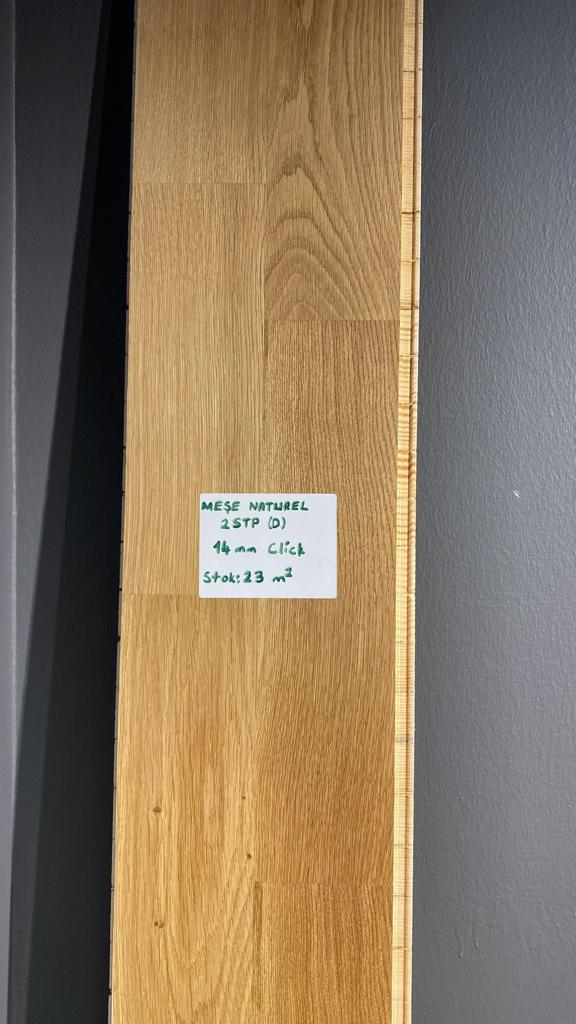 MEŞE NATUREL
2STP (D)
14mm Click
Stok: 23 m²